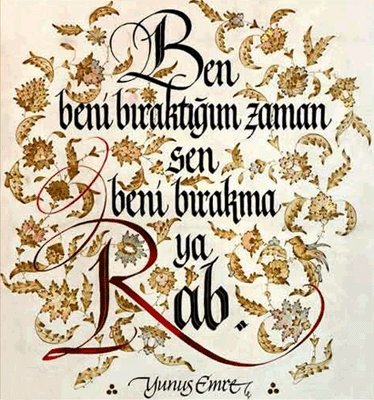 Ben
beni bıraktığım zaman
sen
beni bırakma
ya
Rab.
Yunus Emre